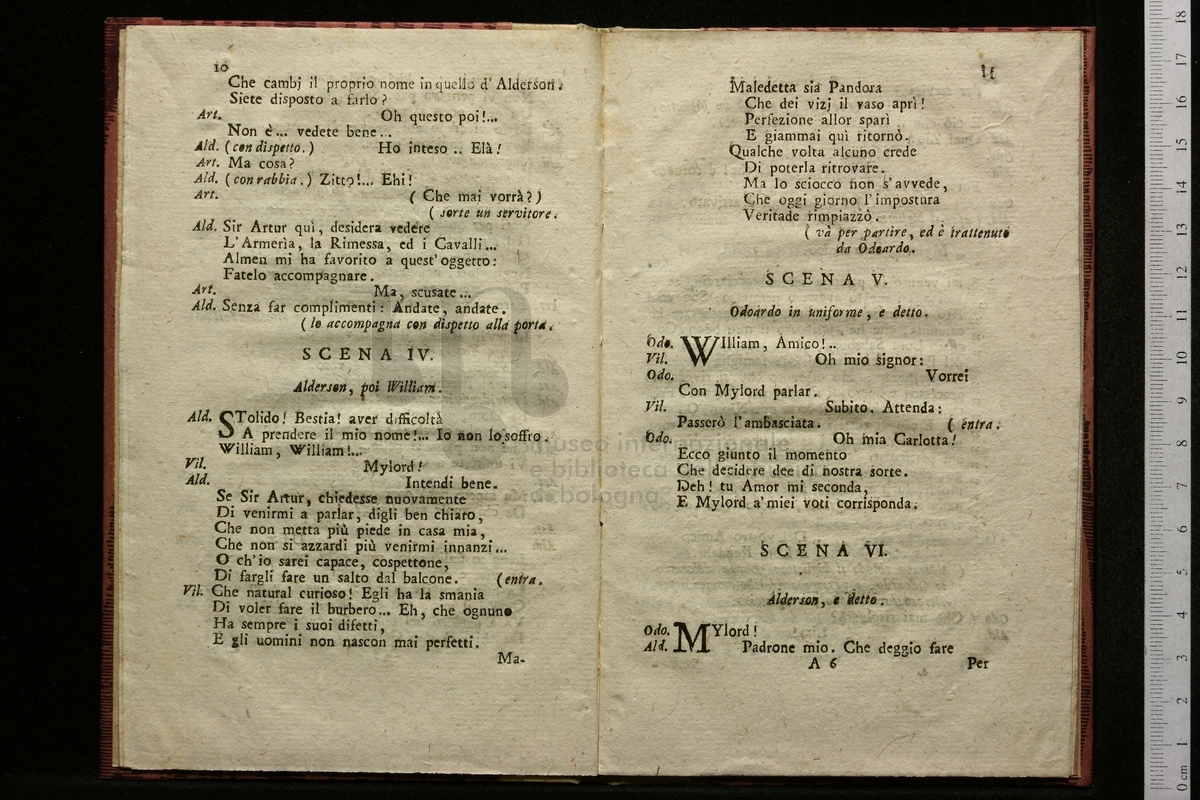 10
Che cambj il proprio nome in quello d' Alderson.
Siete disposto a farlo?
Art. Oh questo poi!...
Non è... vedete bene...
Ald. (con dispetto.) Ho inteso .. Elà!
Art. Ma cosa?
Ald. (con rabbia.) Zitto!... Ehi!
Art. (Che mai vorrà?)
(sorte un servitore.
Ald. Sir Artur quì, desidera vedere
L'Armerìa, la Rimessa, ed i Cavalli...
Almen mi ha favorito a quest'oggetto:
Fatelo accompagnare.
Art. Ma, scusate...
Ald. Senza far complimenti: Andate, andate.
(lo accompagna con dispetto alla porta.
SCENA IV.
Alderson, poi William.
Ald. STolido! Bestia! aver difficoltà
A prendere il mio nome!... Io non lo soffro.
William, William!...
Vil. Mylord!
Ald. Intendi bene.
Se Sir Artur, chiedesse nuovamente
Di venirmi a parlar, digli ben chiaro,
Che non metta più piede in casa mia,
Che non si azzardi più venirmi innanzi...
O ch'io sarei capace, cospettone,
Di fargli fare un salto dal balcone. (entra.
Vil. Che natural curioso! Egli ha la smania
Di voler fare il burbero... Eh, che ognuno
Ha sempre i suoi difetti,
E gli uomini non nascon mai perfetti.
Ma-
11
Maledetta sia Pandora
Che dei vizj il vaso aprì!
Perfezione allor sparì
E giammai quì ritornò.
Qualche volta alcuno crede
Di poterla ritrovare.
Ma lo sciocco non s'avvede,
Che oggi giorno l'impostura
Veritade rimpiazzò.
(và per partire, ed è trattenuto
da Odoardo.
SCENA V.
Odoardo in uniforme, e detto.
Odo. WIlliam, Amico!..
Vil. Oh mio signor:
Odo. Vorrei
Con Mylord parlar.
Vil. Subito. Attenda:
Passerò l'ambasciata. (entra.
Odo. Oh mia Carlotta!
Ecco giunto il momento
Che decidere dee di nostra sorte.
Deh! tu Amor mi seconda,
E Mylord a'miei voti corrisponda.
SCENA VI.
Alderson, e detto.
Odo. MYlord!
Ald. Padrone mio. Che deggio fare
A 6 Per
museo internazionale
e biblioteca
di bologna
0 cm 1 2 3 4 5 6 7 8 9 10 11 12 13 14 15 16 17 18